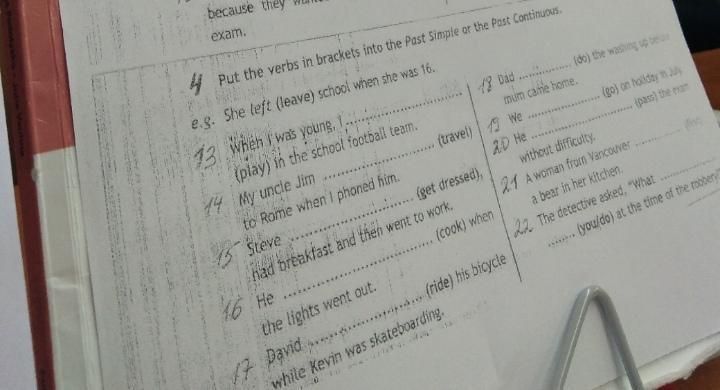 because they
exam.
4 Put the verbs in brackets into the Past Simple or the Past Continuous.
e.g. She left (leave) school when she was 16.
13 When I was young, I ....................
(play) in the school football team.
14 My uncle Jim .................... (travel)
to Rome when I phoned him.
15 Steve .................... (get dressed),
had breakfast and then went to work.
16 He .................... (cook) when
the lights went out.
17 David .................... (ride) his bicycle
while Kevin was skateboarding.
18 Dad .............. (do) the washing up before
mum came home.
19 We .................... (go) on holiday in July.
20 He .................... (pass) the exam
without difficulty.
21 A woman from Vancouver ..............
a bear in her kitchen.
22 The detective asked, "What ..............
....... (you/do) at the time of the robbery?"